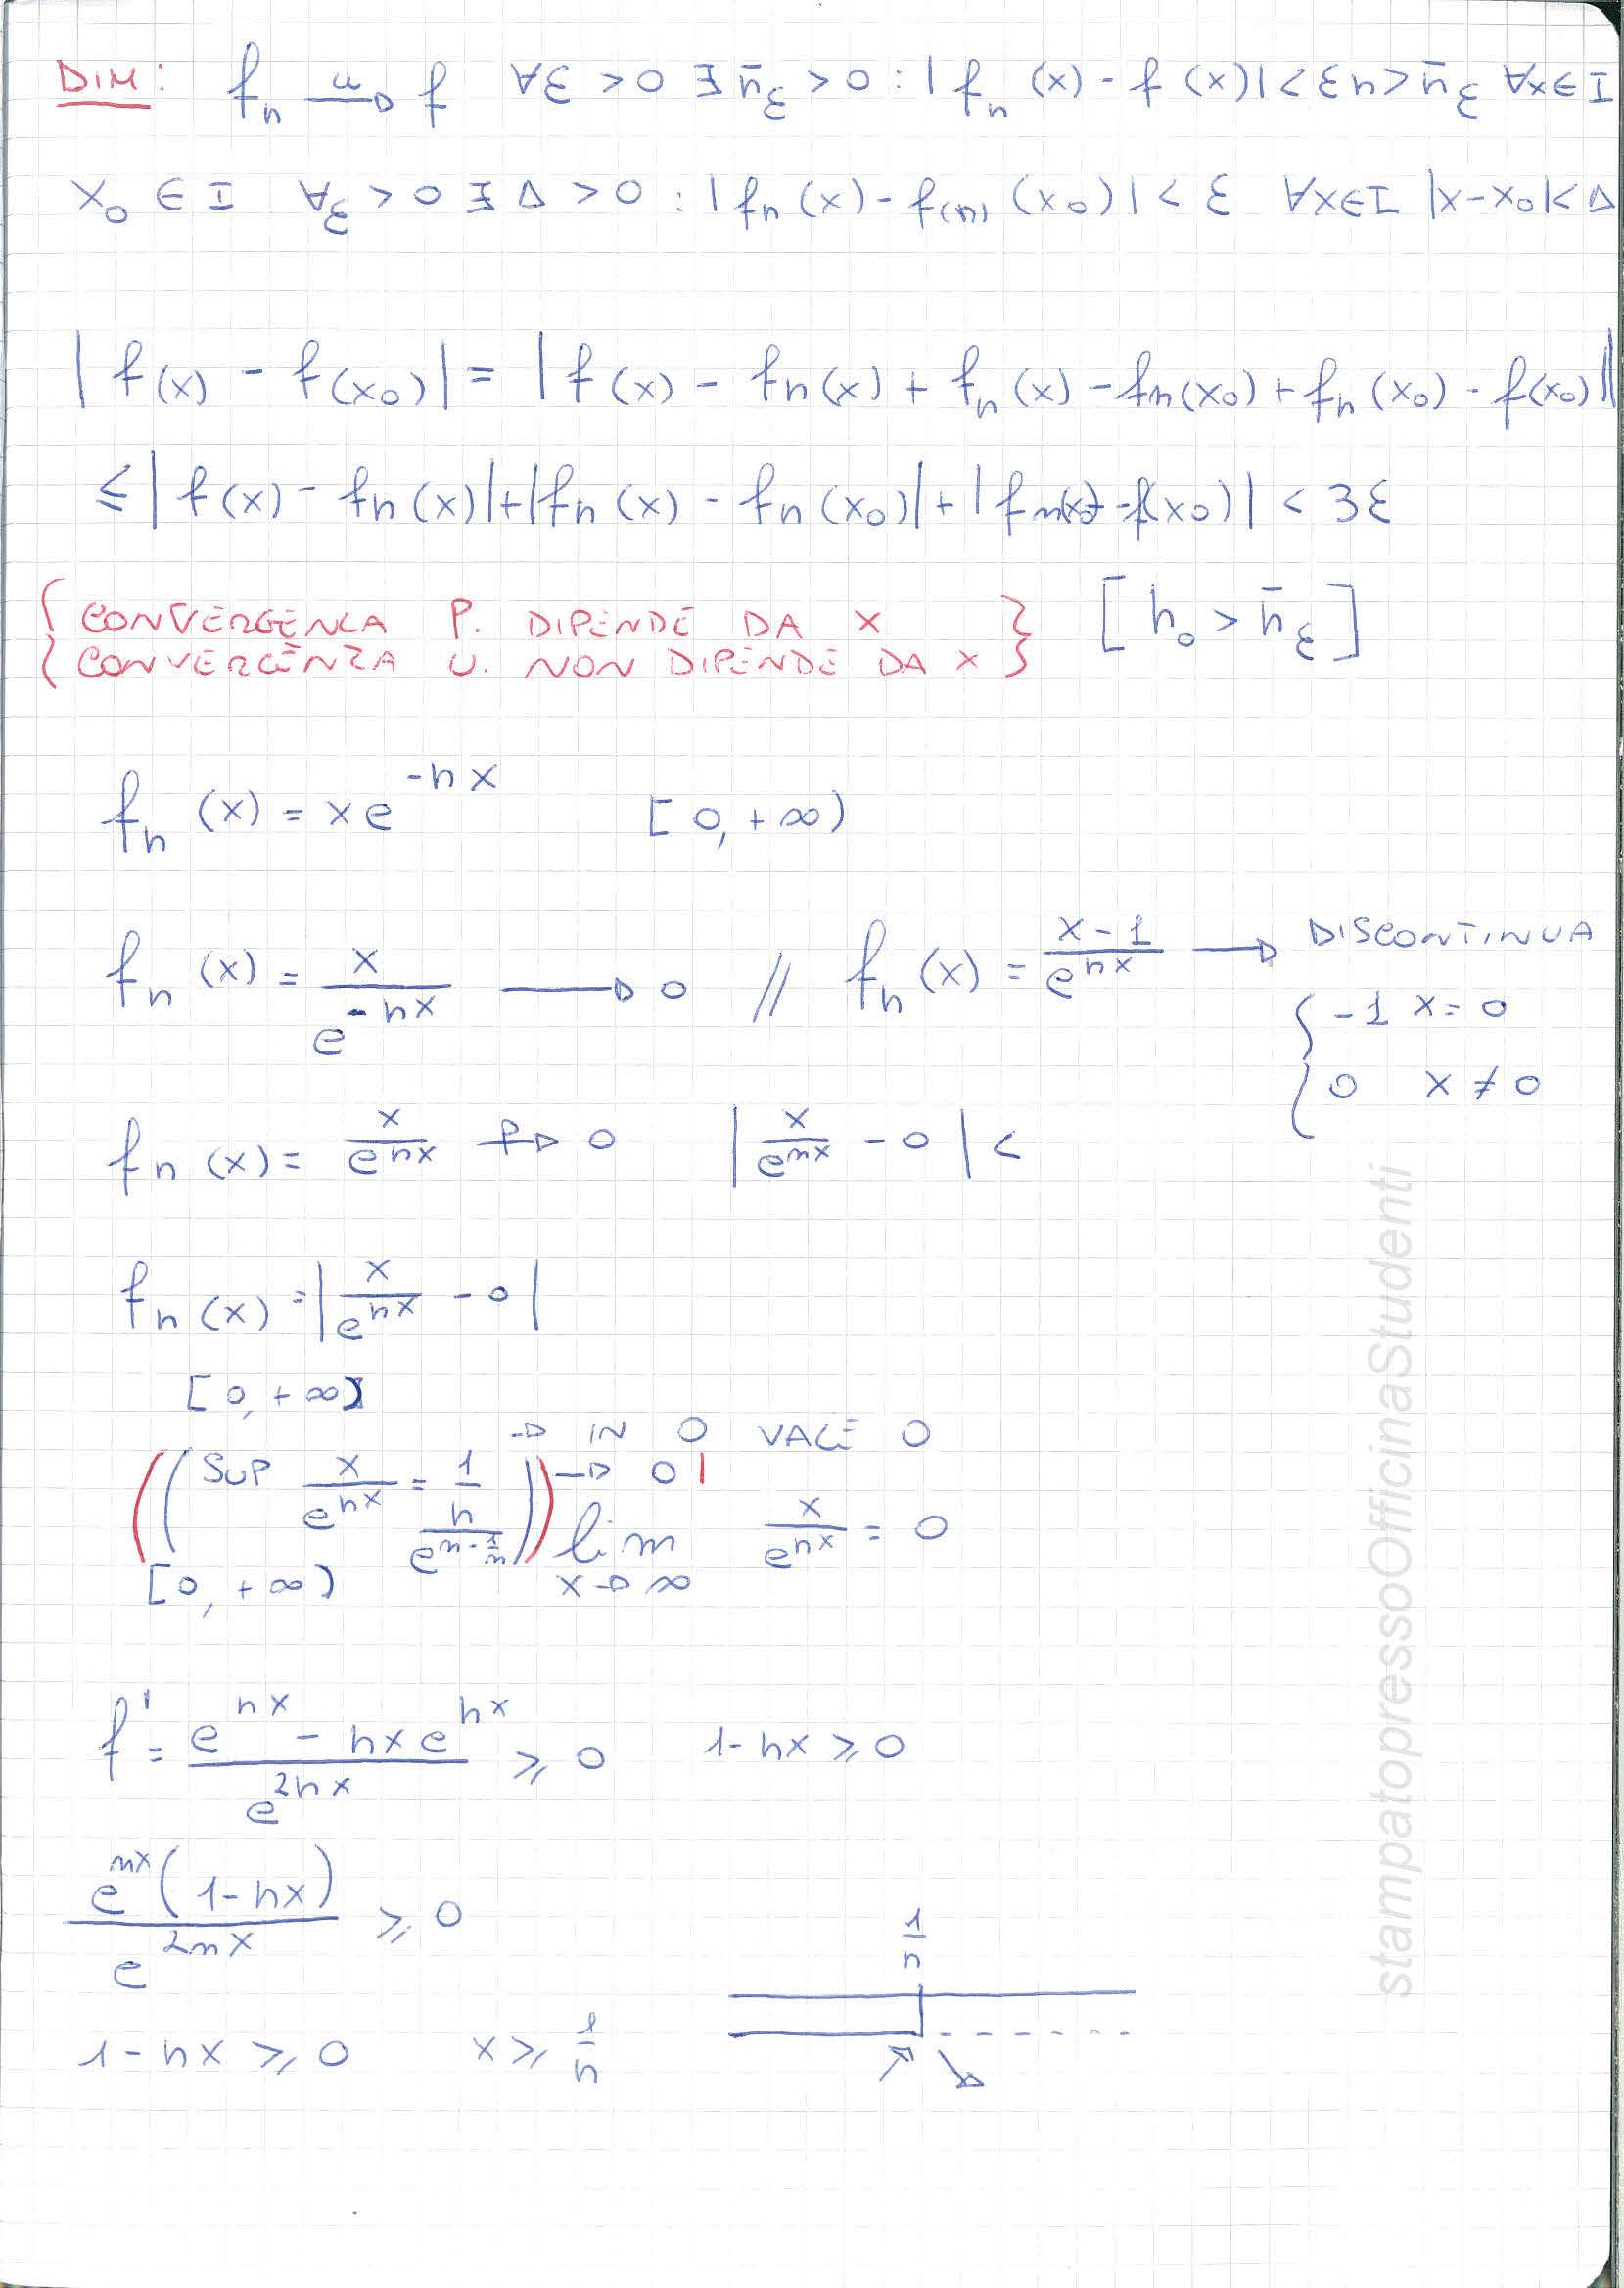 DIM: fₙ —u→ f ∀ε > 0 ∃ n̄_ε > 0 : | fₙ (x) - f (x)| < ε n > n̄_ε ∀x ∈ I
x₀ ∈ I ∀ε > 0 ∃ Δ > 0 : | fₙ (x) - f₍ₙ₎ (x₀) | < ε ∀x ∈ I |x - x₀| < Δ
| f(x) - f(x₀) | = | f(x) - fₙ(x) + fₙ(x) - fₙ(x₀) + fₙ(x₀) - f(x₀) |
≤ | f(x) - fₙ(x) | + | fₙ(x) - fₙ(x₀) | + | fₙ(x₀) - f(x₀) | < 3ε
{ CONVERGENZA P. DIPENDE DA X } [ n₀ > n̄_ε ]
{ CONVERGENZA U. NON DIPENDE DA X }
fₙ (x) = x e^{-nx} [0, +∞)
fₙ (x) = x / e^{-nx} → 0 // fₙ (x) = (x - 1) / e^{nx} → DISCONTINUA
{ -1 x = 0
{ 0 x ≠ 0
fₙ (x) = x / e^{nx} —P→ 0 | x / e^{nx} - 0 | <
fₙ (x) = | x / e^{nx} - 0 |
[0, +∞)
→ IN 0 VALE 0
(( SUP x / e^{nx} = (1/n) / e^{n·1/n} )) → 0 |
[0, +∞) lim x→∞ x / e^{nx} = 0
f' = (e^{nx} - nx e^{nx}) / e^{2nx} ≥ 0 1 - nx ≥ 0
e^{nx} (1 - nx) / e^{2nx} ≥ 0
1/n
1 - nx ≥ 0 x ≥ 1/n
stampatopressoOfficinaStudenti